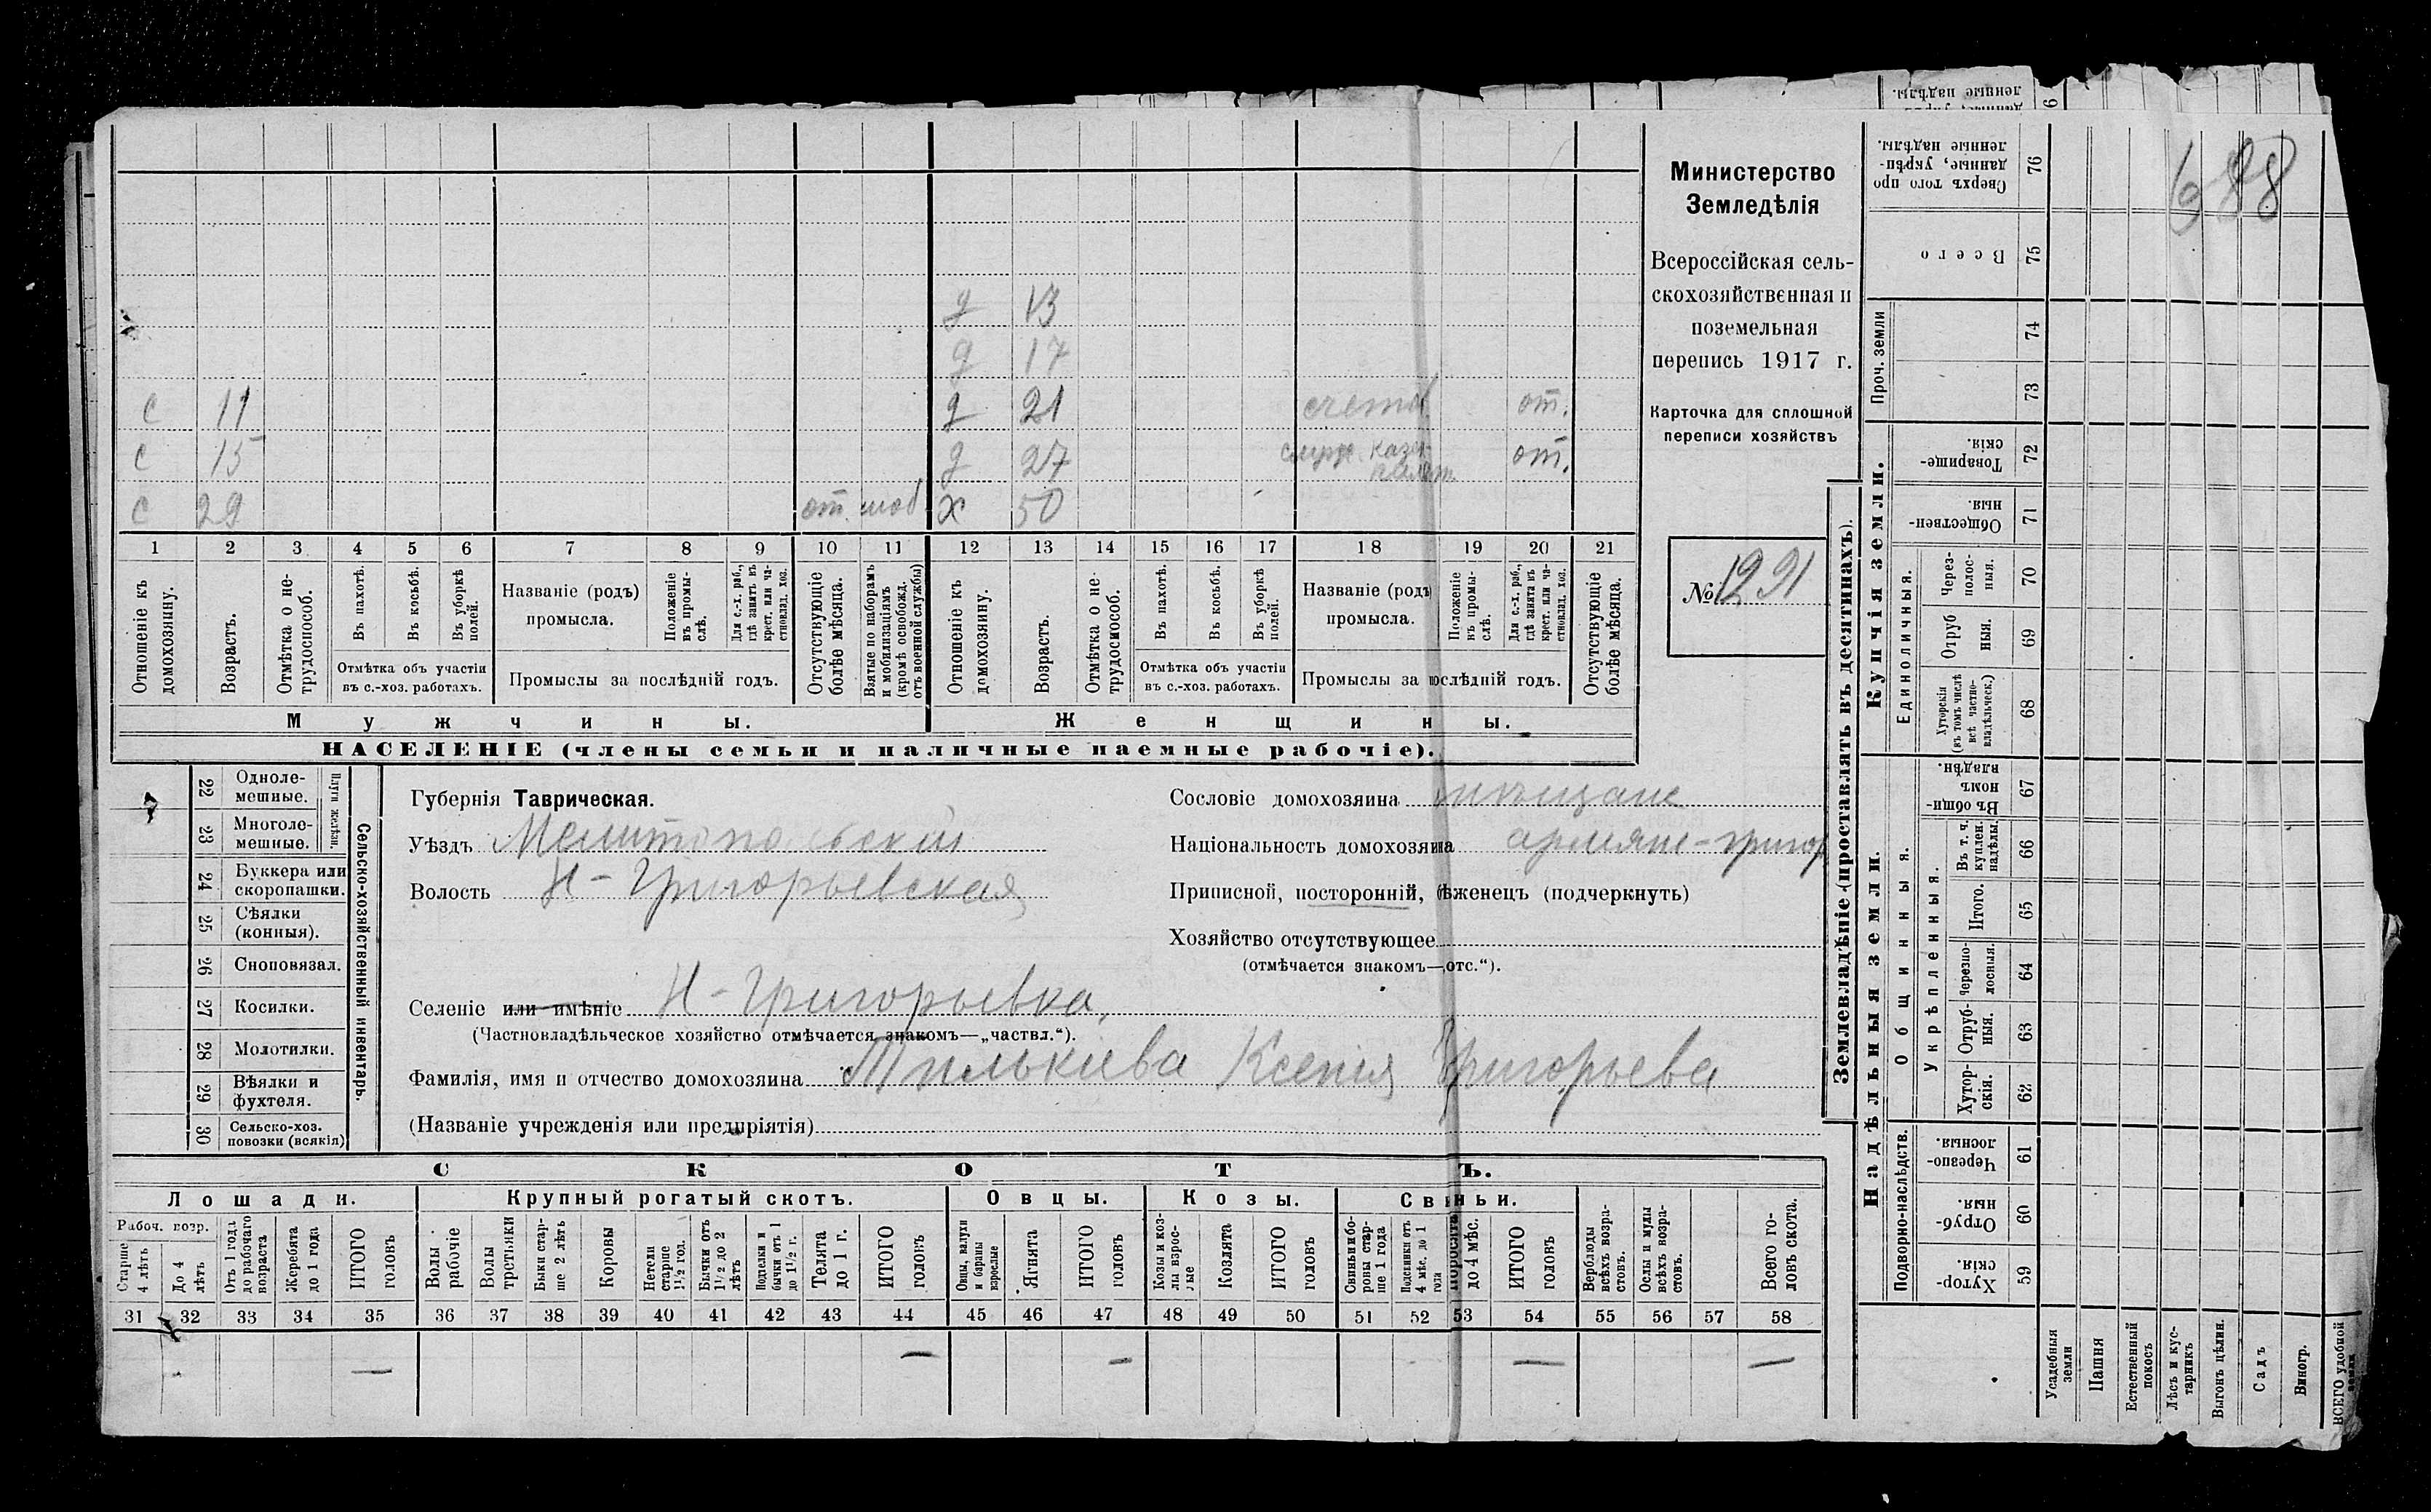 688
Министерство
Земледѣлія
Всероссійская сель-
скохозяйственная и
поземельная
перепись 1917 г.
Карточка для сплошной
переписи хозяйствъ
№ 1291
д 13
д 17
с 11 д 21 счетов. от.
с 15 д 27 служ. казен. палат. от.
с 29 от. моб. х 50
1 2 3 4 5 6 7 8 9 10 11 12 13 14 15 16 17 18 19 20 21
Отношеніе къ домохозяину.
Возрастъ.
Отмѣтка о не-трудоспособ.
Въ пахотѣ.
Въ косьбѣ.
Въ уборкѣ полей.
Отмѣтка объ участіи
въ с.-хоз. работахъ.
Названіе (родъ)
промысла.
Положеніе въ промы-слѣ.
Для с.-х. раб., гдѣ занятъ въ крест. или ча-стновлад. хоз.
Промыслы за послѣдній годъ.
Отсутствующіе болѣе мѣсяца.
Взятые по наборамъ и мобилизаціямъ (кромѣ освобожд. отъ военной службы)
Отношеніе къ домохозяину.
Возрастъ.
Отмѣтка о не-трудоспособ.
Въ пахотѣ.
Въ косьбѣ.
Въ уборкѣ полей.
Отмѣтка объ участіи
въ с.-хоз. работахъ.
Названіе (родъ)
промысла.
Положеніе въ промы-слѣ.
Для с.-х. раб., гдѣ занята въ крест. или ча-стновлад. хоз.
Промыслы за послѣдній годъ.
Отсутствующіе болѣе мѣсяца.
Мужчины. Женщины.
НАСЕЛЕНІЕ (члены семьи и наличные наемные рабочіе).
22 Одноле-мешные.
23 Многоле-мешные.
Плуги желѣзн.
24 Буккера или скоропашки.
25 Сѣялки (конныя).
26 Сноповязал.
27 Косилки.
28 Молотилки.
29 Вѣялки и фухтеля.
30 Сельско-хоз. повозки (всякія)
Сельско-хозяйственный инвентарь.
Губернія Таврическая.
Уѣздъ Мелитопольскій
Волость Н-Григорьевская
Сословіе домохозяина мѣщане
Національность домохозяина армяне-григор
Приписной, посторонній, бѣженецъ (подчеркнуть)
Хозяйство отсутствующее
(отмѣчается знакомъ—„отс.“).
Селеніе или имѣніе Н-Григорьевка,
(Частновладѣльческое хозяйство отмѣчается знакомъ—„частвл.“).
Фамилія, имя и отчество домохозяина Тилькіева Ксенія Григорьева
(Названіе учрежденія или предпріятія)
СКОТЪ.
Лошади. Крупный рогатый скотъ. Овцы. Козы. Свиньи.
Рабоч. возр.
Старше 4 лѣтъ
До 4 лѣтъ
Отъ 1 года до рабочаго возраста
Жеребята до 1 года
ИТОГО головъ
Волы рабочіе
Волы третьяки
Быки стар-ше 2 лѣтъ
Коровы
Нетели старше 1½ год.
Бычки отъ 1½ до 2 лѣтъ
Подтелки и бычки отъ 1 до 1½ г.
Телята до 1 г.
ИТОГО головъ
Овцы, валухи и бараны взрослые
Ягнята
ИТОГО головъ
Козы и коз-лы взрос-лые
Козлята
ИТОГО головъ
Свиньи и бо-ровы стар-ше 1 года
Подсвинки отъ 4 мѣс. до 1 года
Поросята до 4 мѣс.
ИТОГО головъ
Верблюды всѣхъ возра-стовъ.
Ослы и мулы всѣхъ возра-стовъ.
Всего го-ловъ скота.
31 32 33 34 35 36 37 38 39 40 41 42 43 44 45 46 47 48 49 50 51 52 53 54 55 56 57 58
— — — — —
Землевладѣніе (проставлять въ десятинахъ).
Купчія земли.
Надѣльныя земли.
Сверхъ того про-данные, укрѣп-ленные надѣлы. 76
Всего 75
Проч. земли
74
73
Товарище-скія. 72
Обществен-ныя. 71
Единоличныя.
Через-полос-ныя. 70
Отруб-ныя. 69
Хуторскія (въ томъ числѣ всѣ частно-владѣльческ.) 68
Общинныя.
Въ общи-номъ владѣн. 67
Укрѣпленныя.
Въ т. ч. куплен. надѣлы. 66
Итого. 65
Черезпо-лосныя. 64
Отруб-ныя. 63
Хутор-скія. 62
Подворно-наслѣдств.
Черезпо-лосныя. 61
Отруб-ныя. 60
Хутор-скія. 59
Усадебныя земли
Пашня
Естественный покосъ
Лѣсъ и кус-тарникъ
Выгонъ цѣлин.
Садъ
Виногр.
ВСЕГО удобной земли